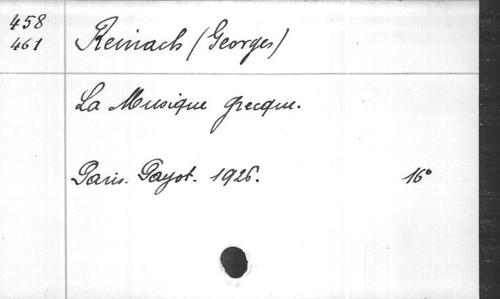 458
461
Reinach (Georges)
La Musique grecque.
Paris. Payot. 1926. 16°